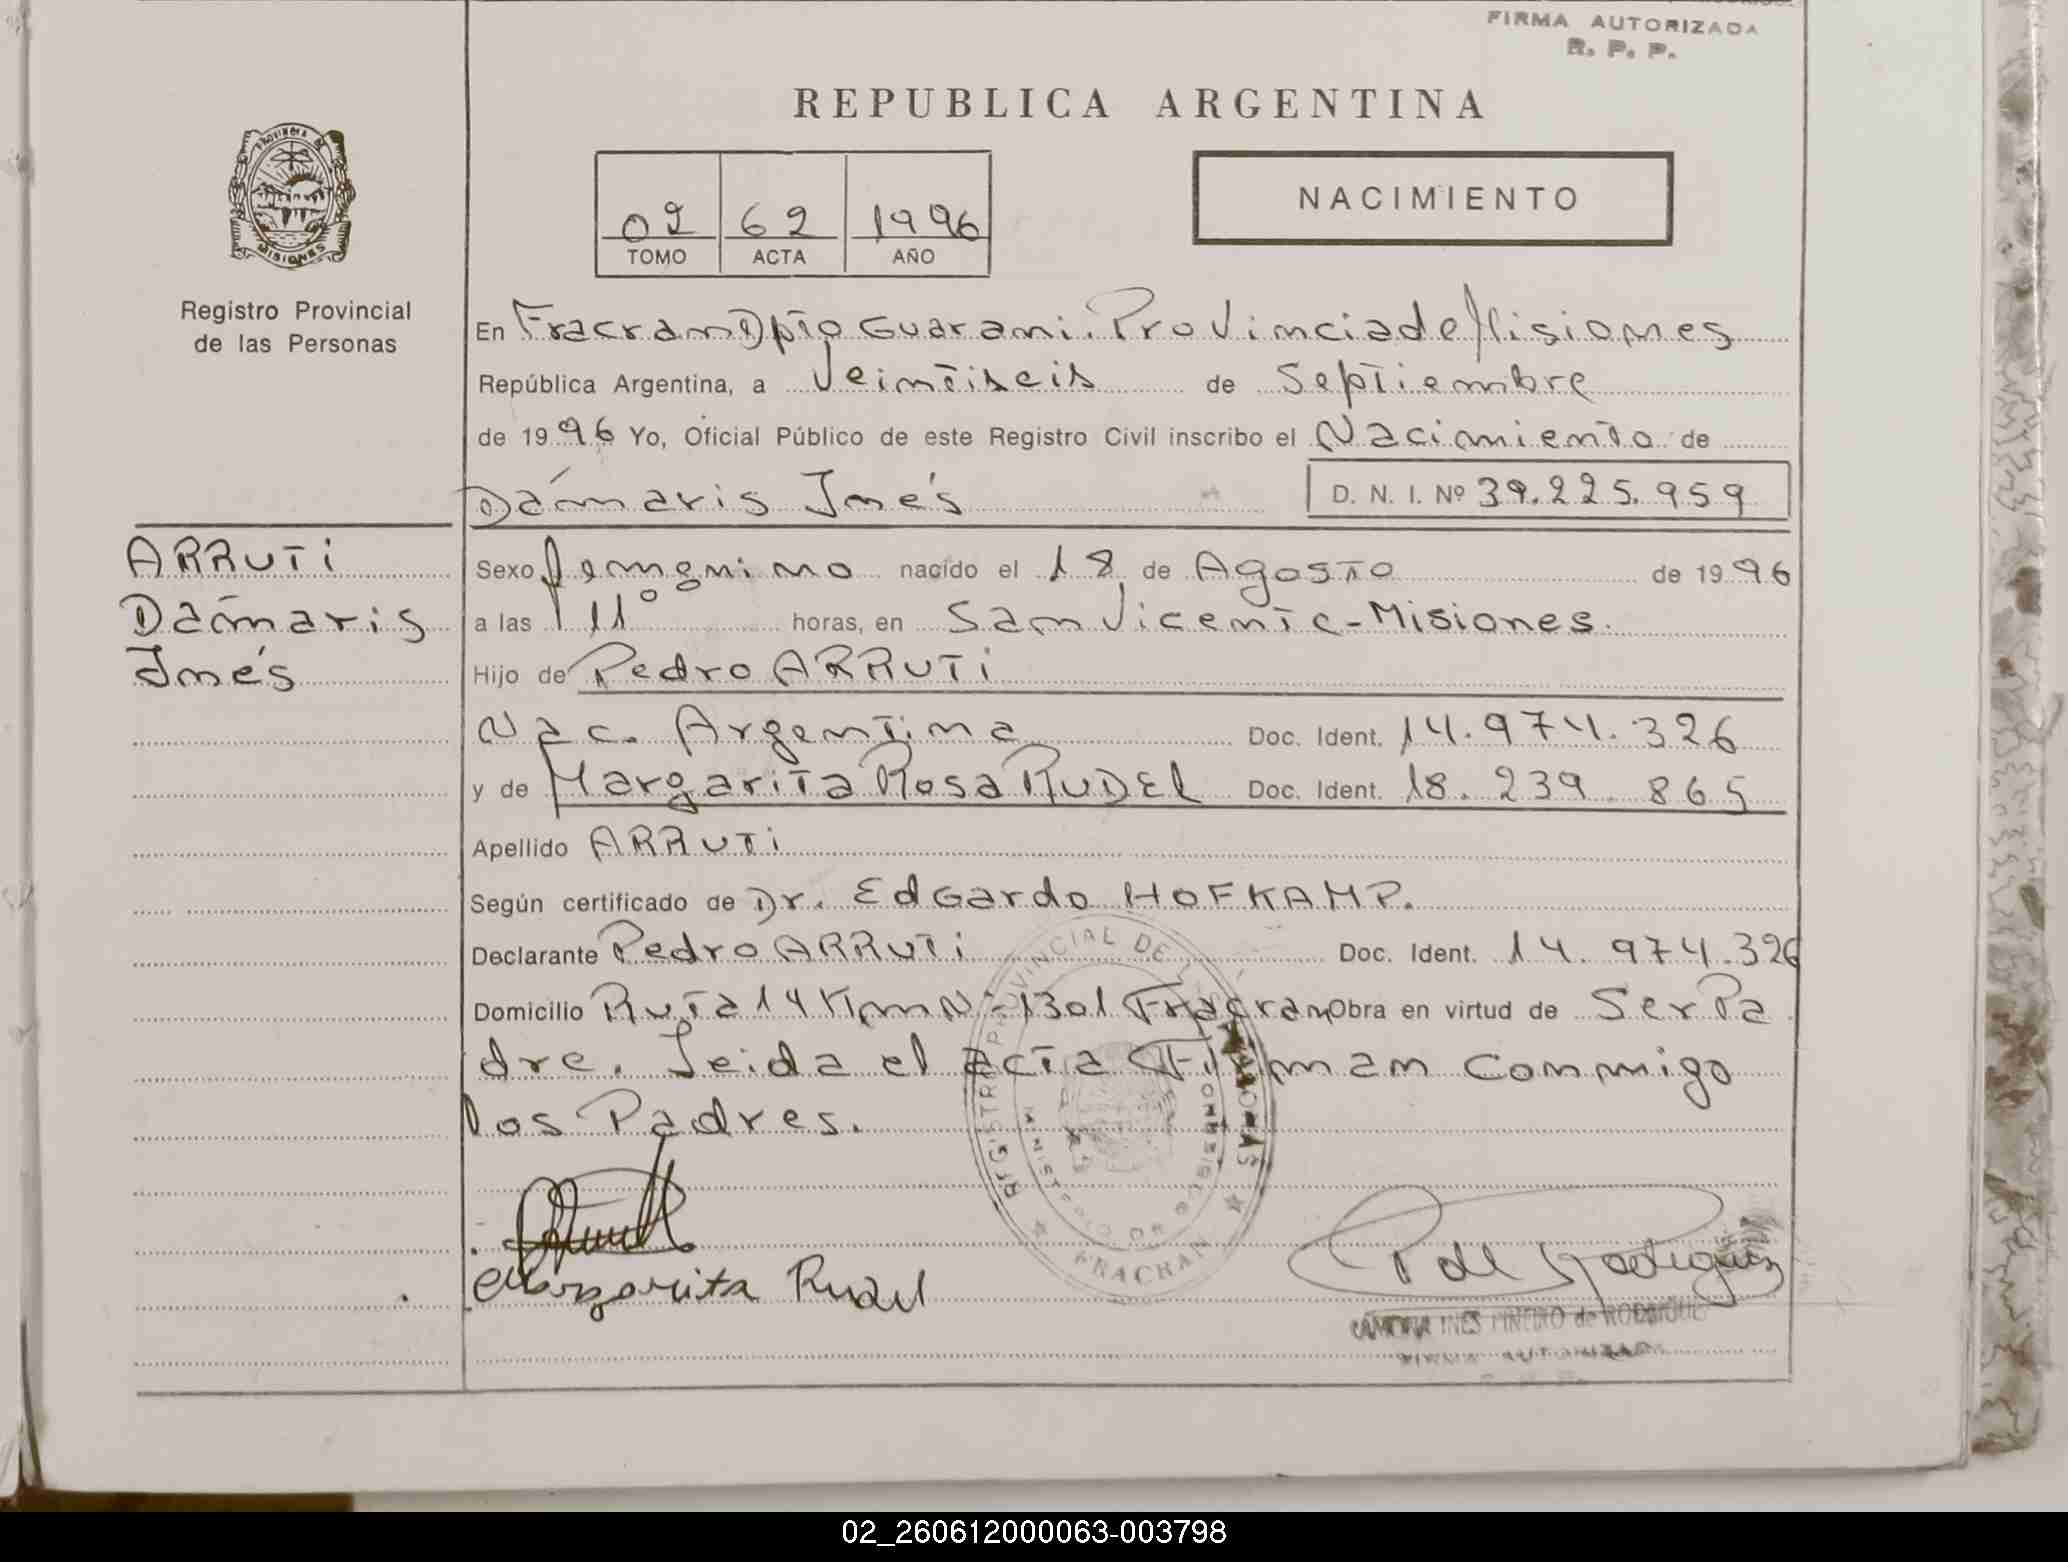 FIRMA AUTORIZADA
R. P. P.
REPUBLICA ARGENTINA
PROVINCIA DE
MISIONES
02 62 1996
TOMO ACTA AÑO
NACIMIENTO
Registro Provincial
de las Personas
En Fracran Dpto Guarani. Provincia de Misiones
República Argentina, a Veintiseis de Septiembre
de 1996 Yo, Oficial Público de este Registro Civil inscribo el Nacimiento de
Dámaris Inés D. N. I. Nº 39.225.959
ARRUTi
Dámaris
Inés
Sexo femenino nacido el 18 de Agosto de 1996
a las 11°° horas, en San Vicente-Misiones.
Hijo de Pedro ARRUTi
Nac. Argentina Doc. Ident. 14.974.326
y de Margarita Rosa RUDEL Doc. Ident. 18.239.865
Apellido ARRUTi
Según certificado de Dr. Edgardo HOFKAMP.
Declarante Pedro ARRUTi Doc. Ident. 14.974.326
Domicilio Ruta 14 Km Nº 1301 Fracran Obra en virtud de Ser Pa
dre. Leida el acta Firman conmigo
los Padres.
REGISTRO PROVINCIAL DE LAS PERSONAS
MINISTERIO DE GOBIERNO
FRACRAN
Margarita Rudel
P de Rodriguez
INES PINEIRO de RODRIGUEZ
FIRMA AUTORIZADA
02_260612000063-003798